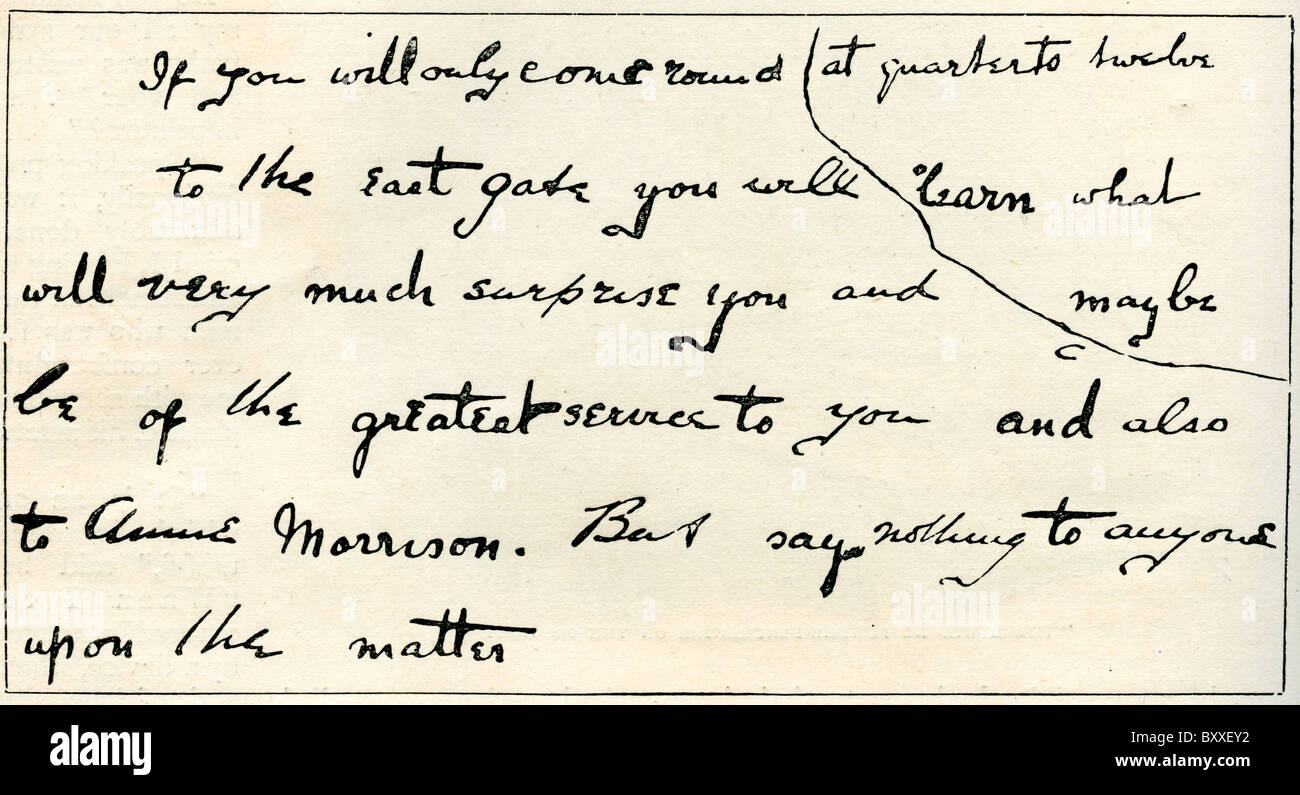 If you will only come round at quarter to twelve
to the east gate you will learn what
will very much surprise you and maybe
be of the greatest service to you and also
to Annie Morrison. But say nothing to anyone
upon the matter
alamy
Image ID: BXXEY2
www.alamy.com